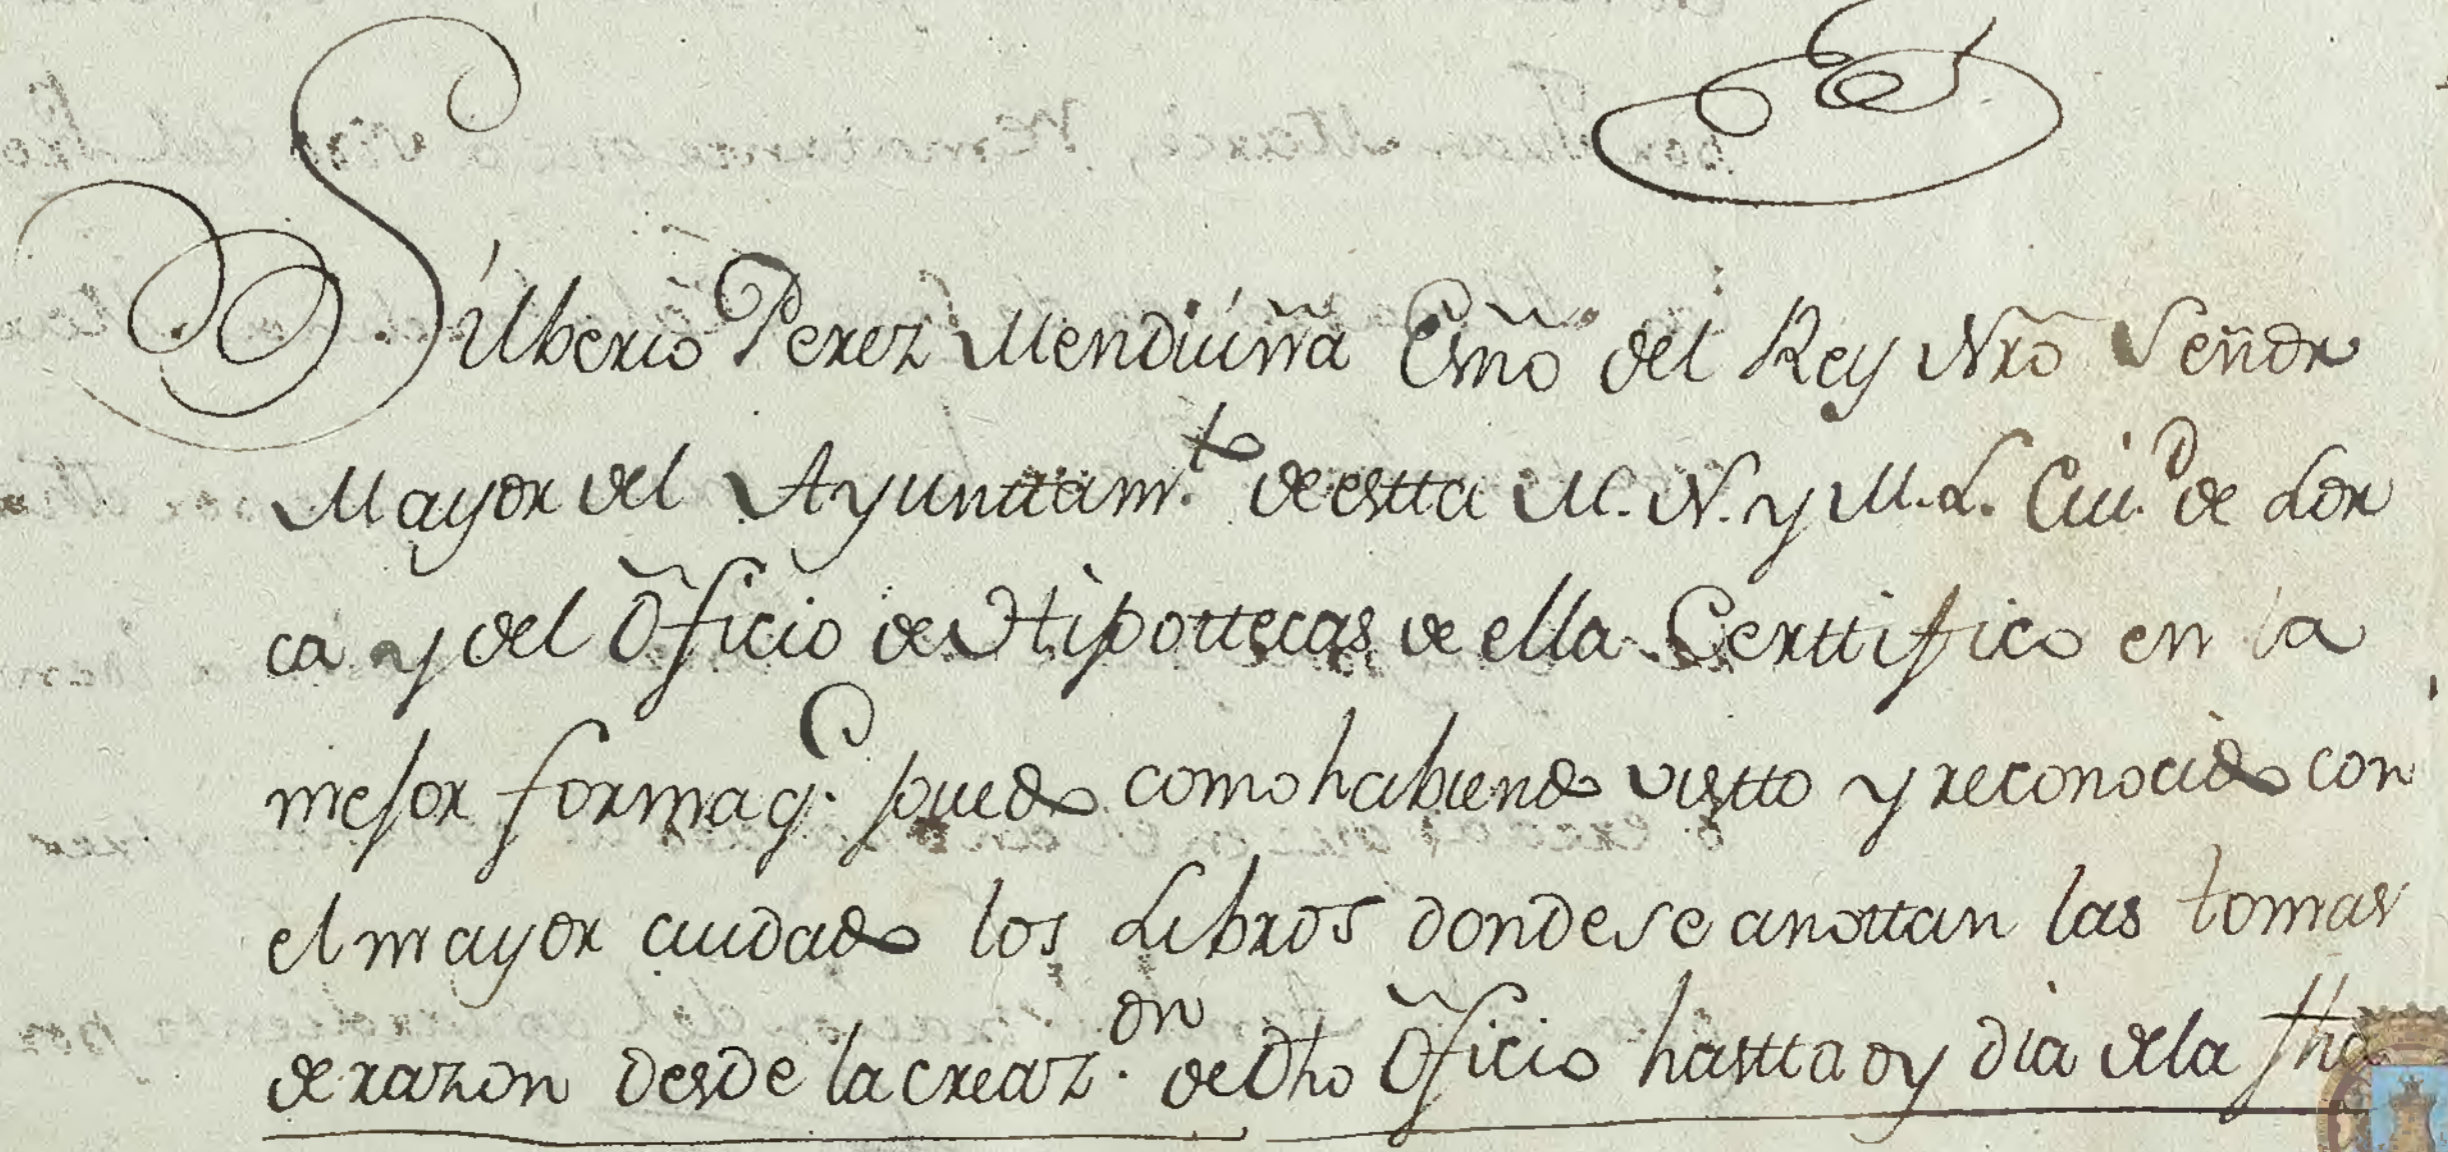 Silberio Perez Menduiña Esño del Rey Nrõ Señor
Mayor del Ayunttam.to de estta M. N. y M. L. Ciu.d de Lor
ca y del Oficio de Hipottecas de ella Certtifico en la
mejor forma q.e puedo como habiendo vistto y reconocido con
el mayor cuidado los Libros donde se anottan las tomas
de razon desde la creaz.on de dho Oficio hastta oy dia dela fha